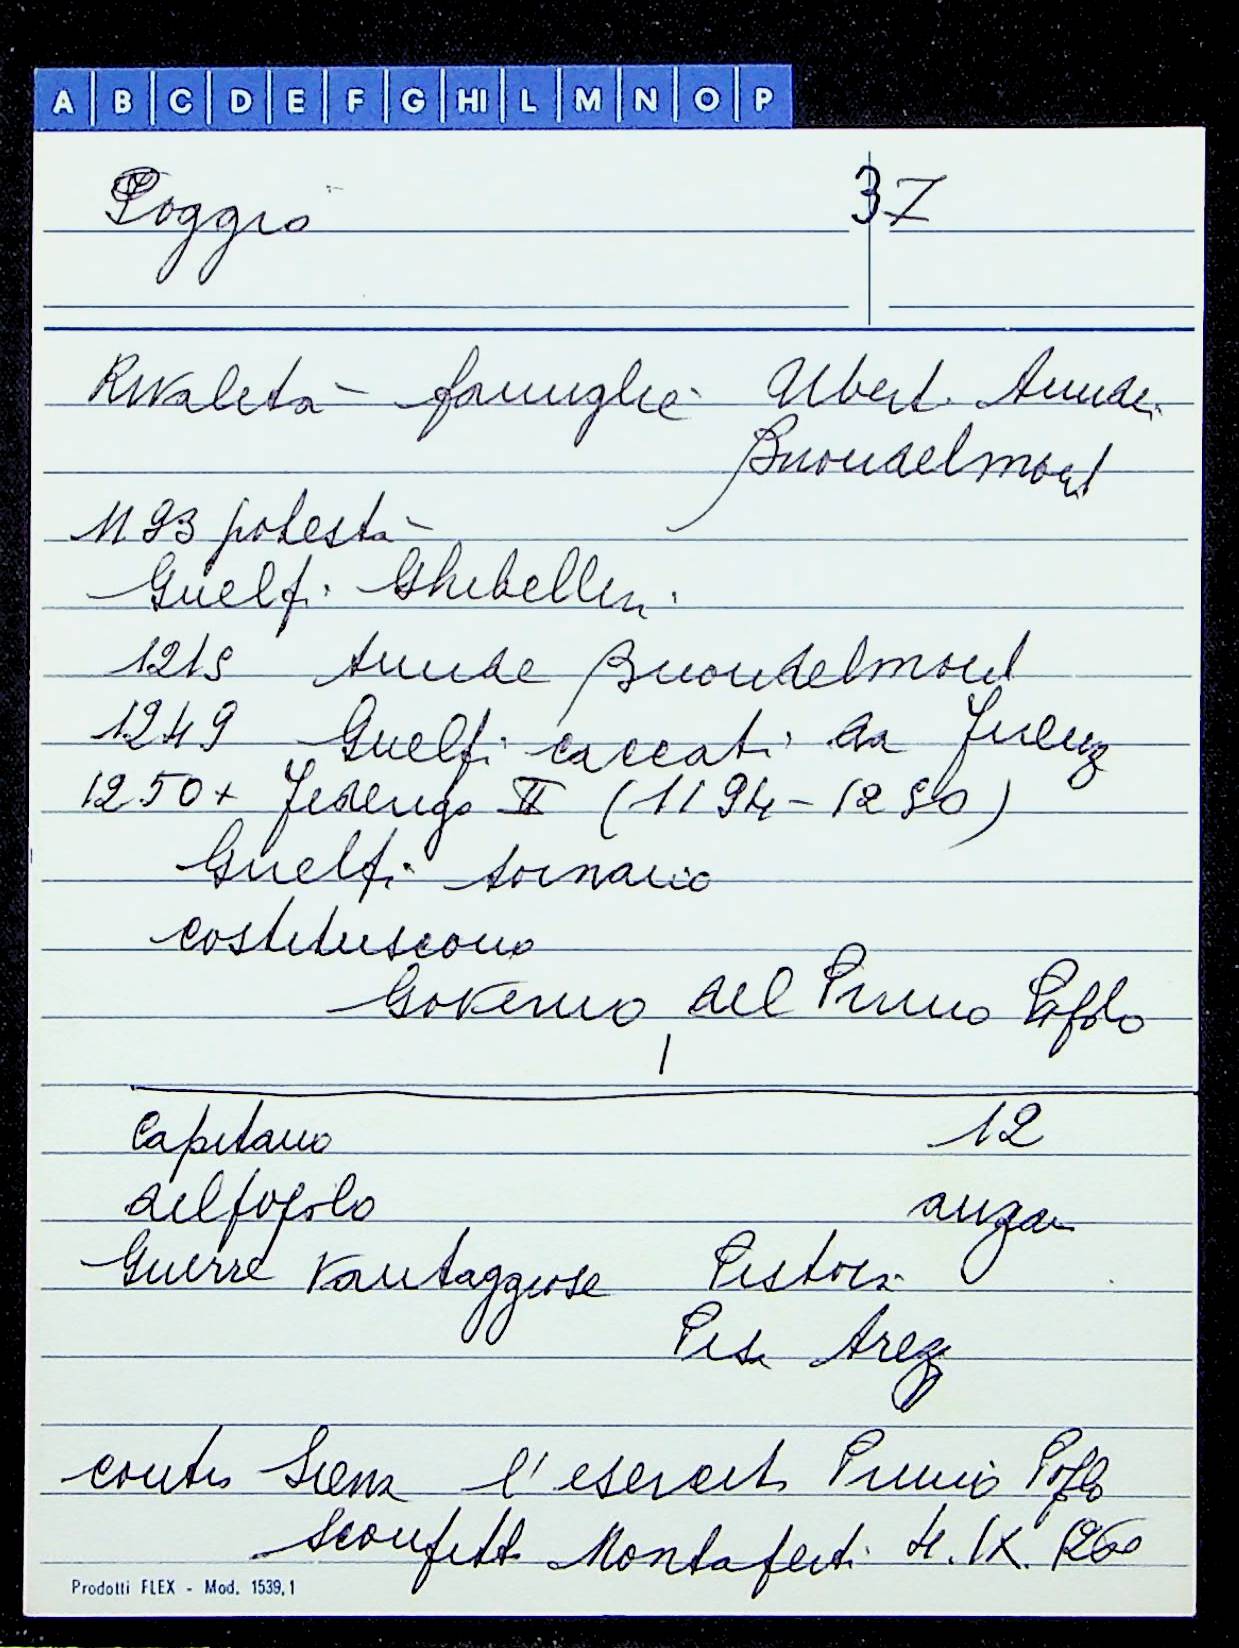 A B C D E F G HI L M N O P
Poggio 37
Rivalità famiglie Uberti Amidei
Buondelmont
1193 potestà
Guelfi Ghibellini
1215 Amide Buondelmont
1249 Guelfi cacciati da Firenz
1250 + Federigo II (1194-1250)
Guelfi tornano
costituiscono
Governo del Primo Popolo
Capitano 12
del popolo anzian
Guerre vantaggiose Pistoia
Pisa Arez
contro Siena l'esercito Primo Popolo
sconfitto Montaperti 4.IX.1260
Prodotti FLEX - Mod. 1539,1